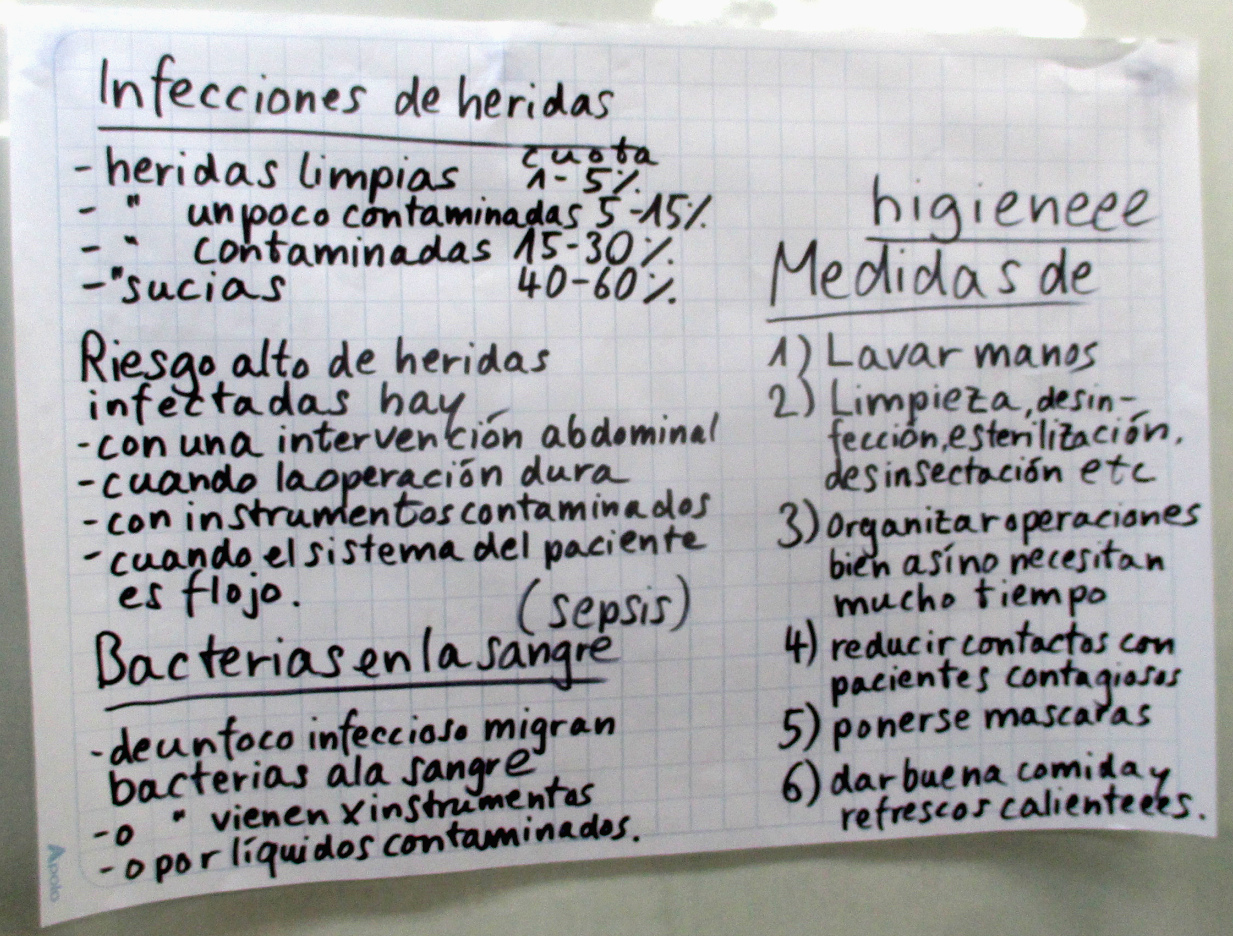 Infecciones de heridas
cuota
- heridas limpias 1-5%
- " un poco contaminadas 5-15%
- " contaminadas 15-30%
- " sucias 40-60%
Riesgo alto de heridas
infectadas hay
- con una intervención abdominal
- cuando la operación dura
- con instrumentos contaminados
- cuando el sistema del paciente
es flojo.
(sepsis)
Bacterias en la sangre
- de un foco infeccioso migran
bacterias a la sangre
- o " vienen x instrumentos
- o por líquidos contaminados.
higieneee
Medidas de
1) Lavar manos
2) Limpieza, desin-
fección, esterilización,
desinsectación etc
3) Organizar operaciones
bien así no necesitan
mucho tiempo
4) reducir contactos con
pacientes contagiosos
5) ponerse mascaras
6) dar buena comida y
refrescos calienteees.
Apolo